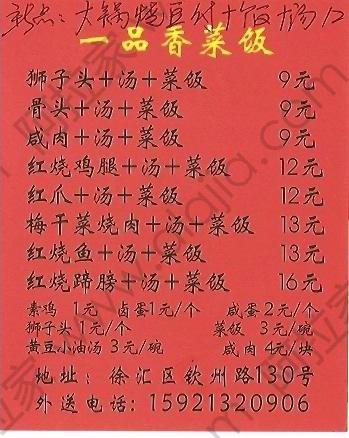 新点：大锅烧豆付+饭+汤12
一品香菜饭
狮子头+汤+菜饭 9元
骨头+汤+菜饭 9元
咸肉+汤+菜饭 9元
红烧鸡腿+汤+菜饭 12元
红爪+汤+菜饭 12元
梅干菜烧肉+汤+菜饭 13元
红烧鱼+汤+菜饭 13元
红烧蹄膀+汤+菜饭 16元
素鸡 1元 卤蛋1元/个 咸蛋2元/个
狮子头1元/个 菜饭 3元/碗
黄豆小油汤3元/碗 咸肉4元/块
地址：徐汇区钦州路130号
外送电话：15921320906